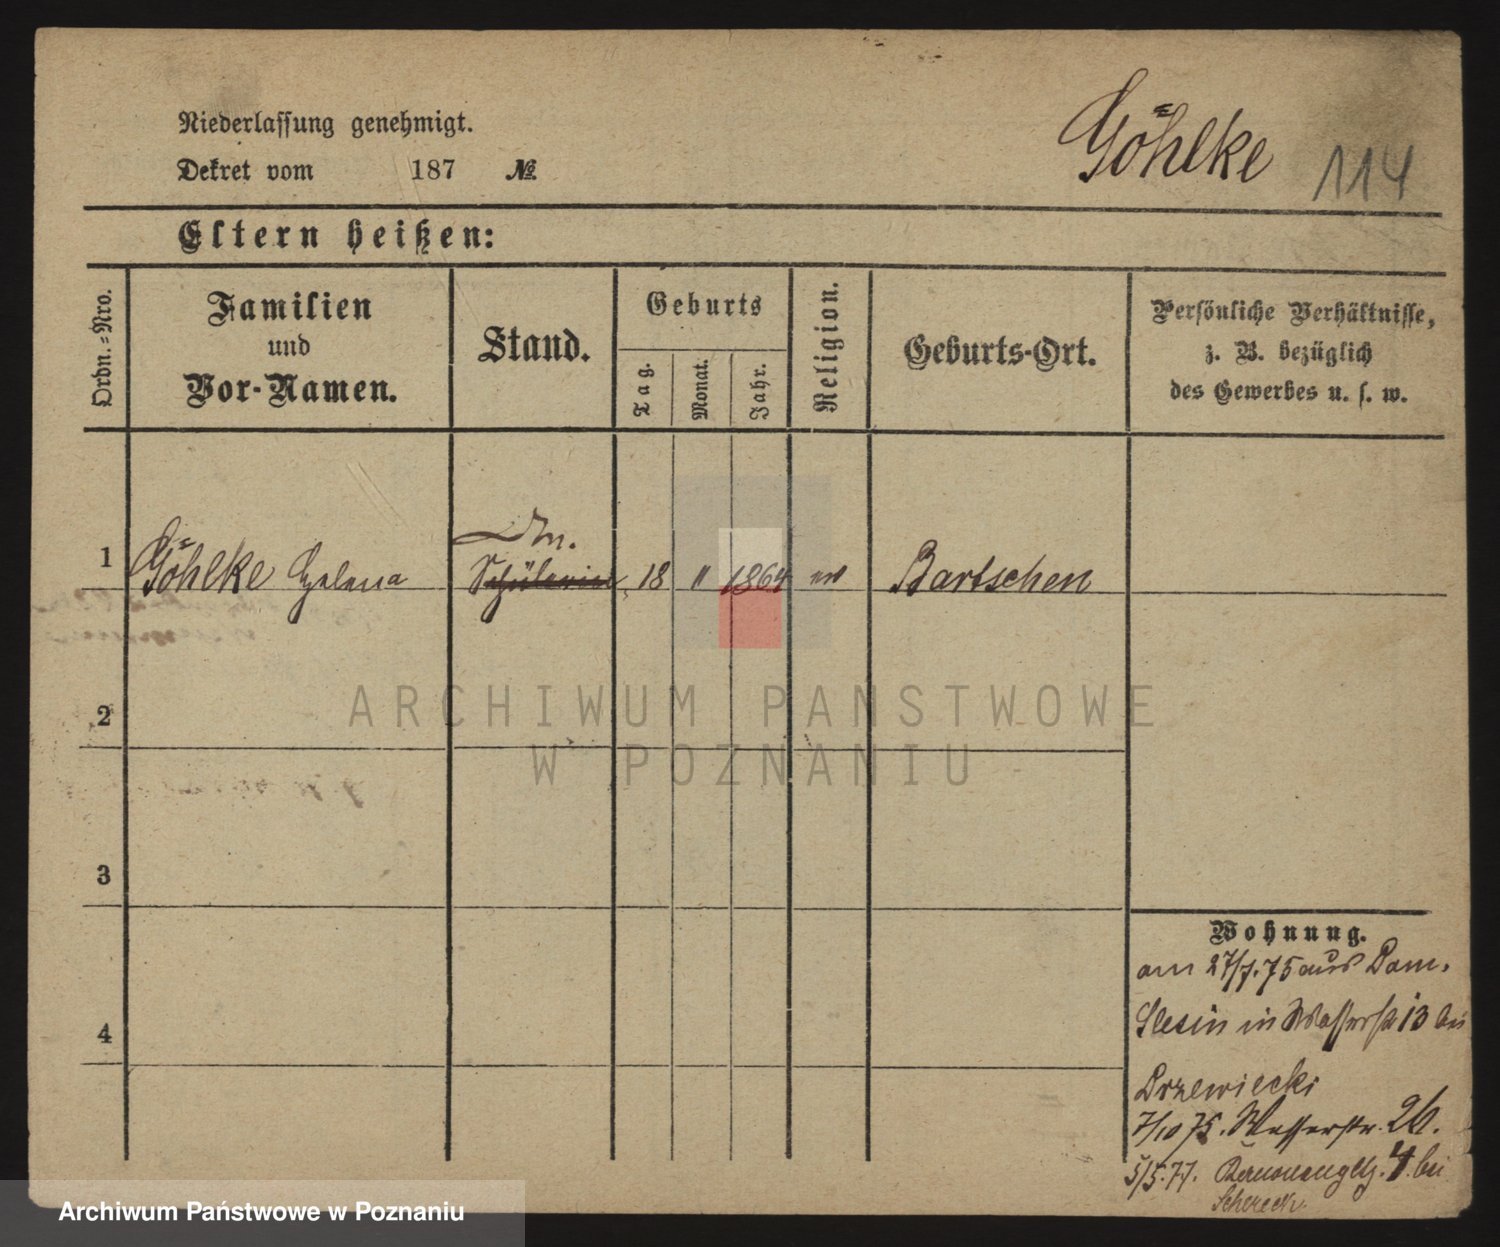 Niederlassung genehmigt.
Dekret vom 187 №
Göhlke 114
Eltern heißen:
Ordn.-Nro.
Familien
und
Vor-Namen.
Stand.
Geburts
Tag.
Monat.
Jahr.
Religion.
Geburts-Ort.
Persönliche Verhältnisse,
z. B. bezüglich
des Gewerbes u. s. w.
1 Göhlke Helena Schülerin 18 " 1864 ev Bartschen
2
3
4
Wohnung.
am 27/7.75 aus Dom.
Slesin in Wasserstr 13 bei
Drzewiecki
7/10 75. Wasserstr. 26.
5/5.77. 4. bei
ARCHIWUM PAŃSTWOWE
W POZNANIU
Archiwum Państwowe w Poznaniu